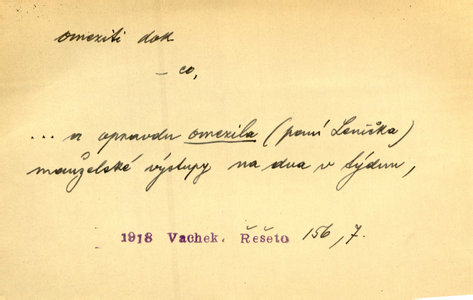 omeziti dok
– co,
... a opravdu omezila (paní Lenčka)
manželské výstupy na dva v týdnu,
1918 Vachek. Řešeto 156, 7.